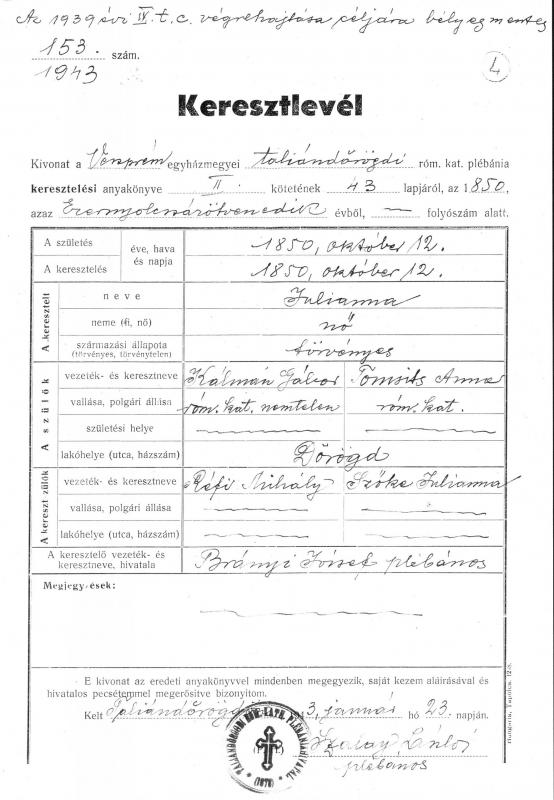 Az 1939 évi IV. t. c. végrehajtása céljára bélyegmentes
153. szám.
1943
4
Keresztlevél
Kivonat a Veszprém egyházmegyei taliándörögdi róm. kat. plébánia
keresztelési anyakönyve II. kötetének 43 lapjáról, az 1850,
azaz Ezernyolcszázötvenedik évből, — folyószám alatt.
A születés éve, hava és napja 1850, október 12.
A keresztelés 1850, október 12.
A keresztelt
neve Julianna
neme (fi, nő) nő
származási állapota (törvényes, törvénytelen) törvényes
A szülők
vezeték- és keresztneve Kálmán Gábor Tomsits Anna
vallása, polgári állása róm. kat. nemtelen róm. kat.
születési helye
lakóhelye (utca, házszám) Dörögd
A kereszt zülők
vezeték- és keresztneve Réfi Mihály Szőke Julianna
vallása, polgári állása
lakóhelye (utca, házszám)
A keresztelő vezeték- és keresztneve, hivatala Brányi József plébános
Megjegyzések:
E kivonat az eredeti anyakönyvvel mindenben megegyezik, saját kezem aláirásával és
hivatalos pecsétemmel megerősitve bizonyitom.
Kelt Taliándörögd 3, január hó 23. napján.
Szalay László
plébános
Hungária, Tapolca.